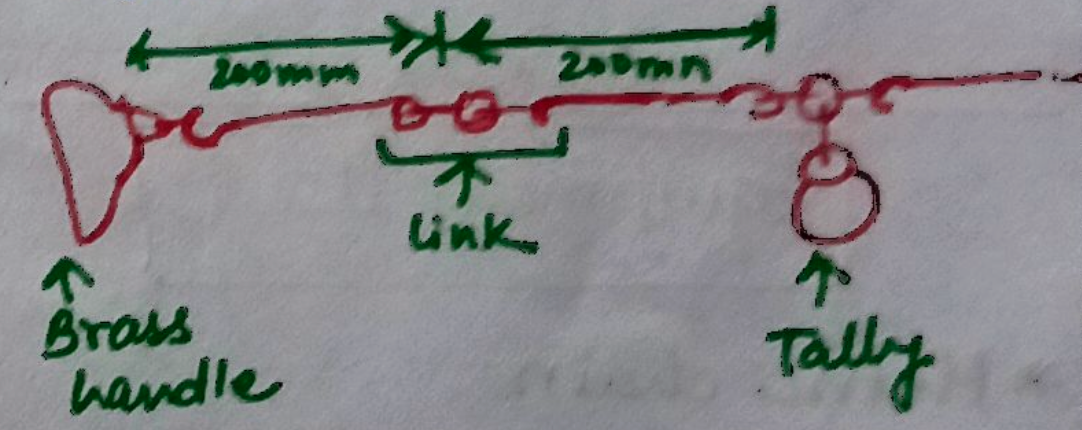 200mm
200mm
Link
Brass
handle
Tally